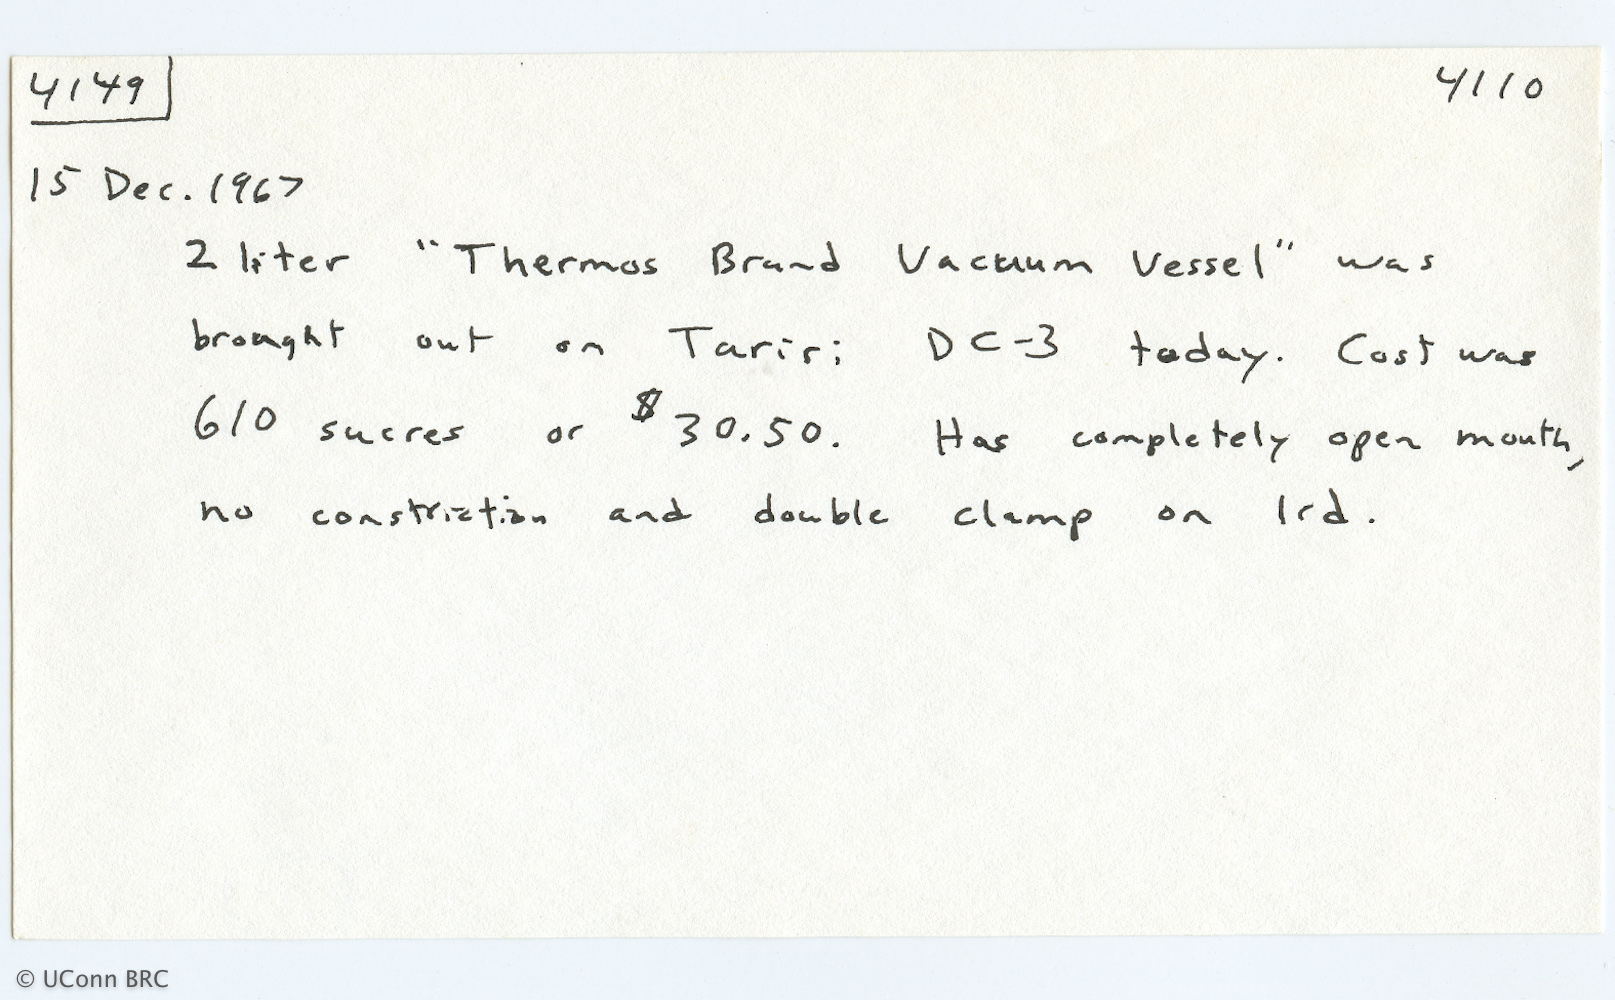 4149 4110
15 Dec. 1967
2 liter "Thermos Brand Vacuum Vessel" was
brought out on Tariri DC-3 today. Cost was
610 sucres or $30.50. Has completely open mouth,
no constriction and double clamp on lid.
© UConn BRC